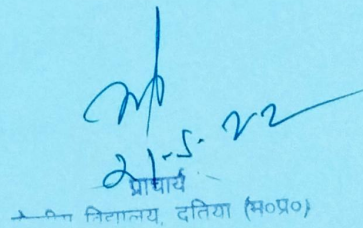 21.5.22
प्राचार्य
विद्यालय, दतिया (म०प्र०)